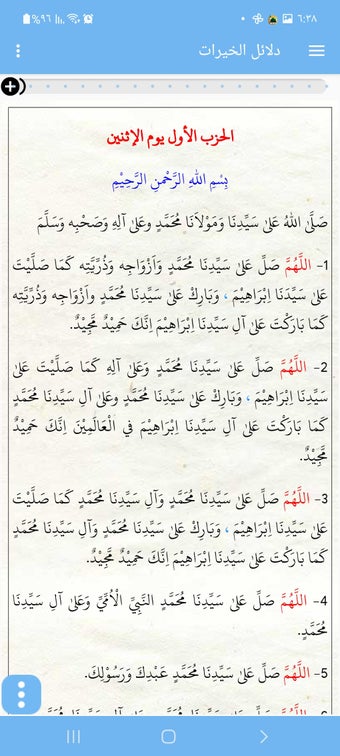 ٦:٣٨
%٩٦
دلائل الخيرات
الحزب الأول يوم الإثنين
بِسْمِ اللهِ الرَّحْمنِ الرَّحِيْمِ
صَلَّى اللهُ عَلىٰ سَيِّدِنَا وَمَوْلَانَا مُحَمَّدٍ وعَلىٰ آلِهِ وَصَحْبِه وَسَلَّمَ
1- اللَّهُمَّ صَلِّ عَلىٰ سَيِّدِنَا مُحَمَّدٍ وَاَزْوَاجِه وَذُرِّيَّتِه كَمَا صَلَّيْتَ
عَلىٰ سَيِّدَنَا اِبْرَاهِيْمَ ، وَبَارِكْ عَلىٰ سَيِّدِنَا مُحَمَّدٍ وأَزْوَاجِه وَذُرِّيَّتِه
كَمَا بَارَكْتَ عَلىٰ آلِ سَيِّدِنَا اِبْرَاهِيْمَ اِنَّكَ حَمِيْدٌ مَّجِيْدٌ.
2- اللَّهُمَّ صَلِّ عَلىٰ سَيِّدِنَا مُحَمَّدٍ وَعَلىٰ آلِهِ كَمَا صَلَّيْتَ عَلىٰ
سَيِّدِنَا اِبْرَاهِيْمَ ، وَبَارِكْ عَلىٰ سَيِّدِنَا مُحَمَّدٍ وعَلىٰ آلِ سَيِّدِنَا مُحَمَّدٍ
كَمَا بَارَكْتَ عَلىٰ آلِ سَيِّدِنَا اِبْرَاهِيْمَ فِي الْعَالَمِيْنَ اِنَّكَ حَمِيْدٌ
مَّجِيْدٌ.
3- اللَّهُمَّ صَلِّ عَلىٰ سَيِّدِنَا مُحَمَّدٍ وَآلِ سَيِّدِنَا مُحَمَّدٍ كَمَا صَلَّيْتَ
عَلىٰ سَيِّدِنَا اِبْرَاهِيْمَ ، وَبَارِكْ عَلىٰ سَيِّدِنَا مُحَمَّدٍ وَآلِ سَيِّدِنَا مُحَمَّدٍ
كَمَا بَارَكْتَ عَلىٰ آلِ سَيِّدِنَا اِبْرَاهِيْمَ اِنَّكَ حَمِيْدٌ مَّجِيْدٌ.
4- اللَّهُمَّ صَلِّ عَلىٰ سَيِّدِنَا مُحَمَّدٍ النَّبِيِّ الْاُمِّيِّ وَعَلىٰ آلِ سَيِّدِنَا
مُحَمَّدٍ.
5- اللَّهُمَّ صَلِّ عَلىٰ سَيِّدِنَا مُحَمَّدٍ عَبْدِكَ وَرَسُوْلِكَ.